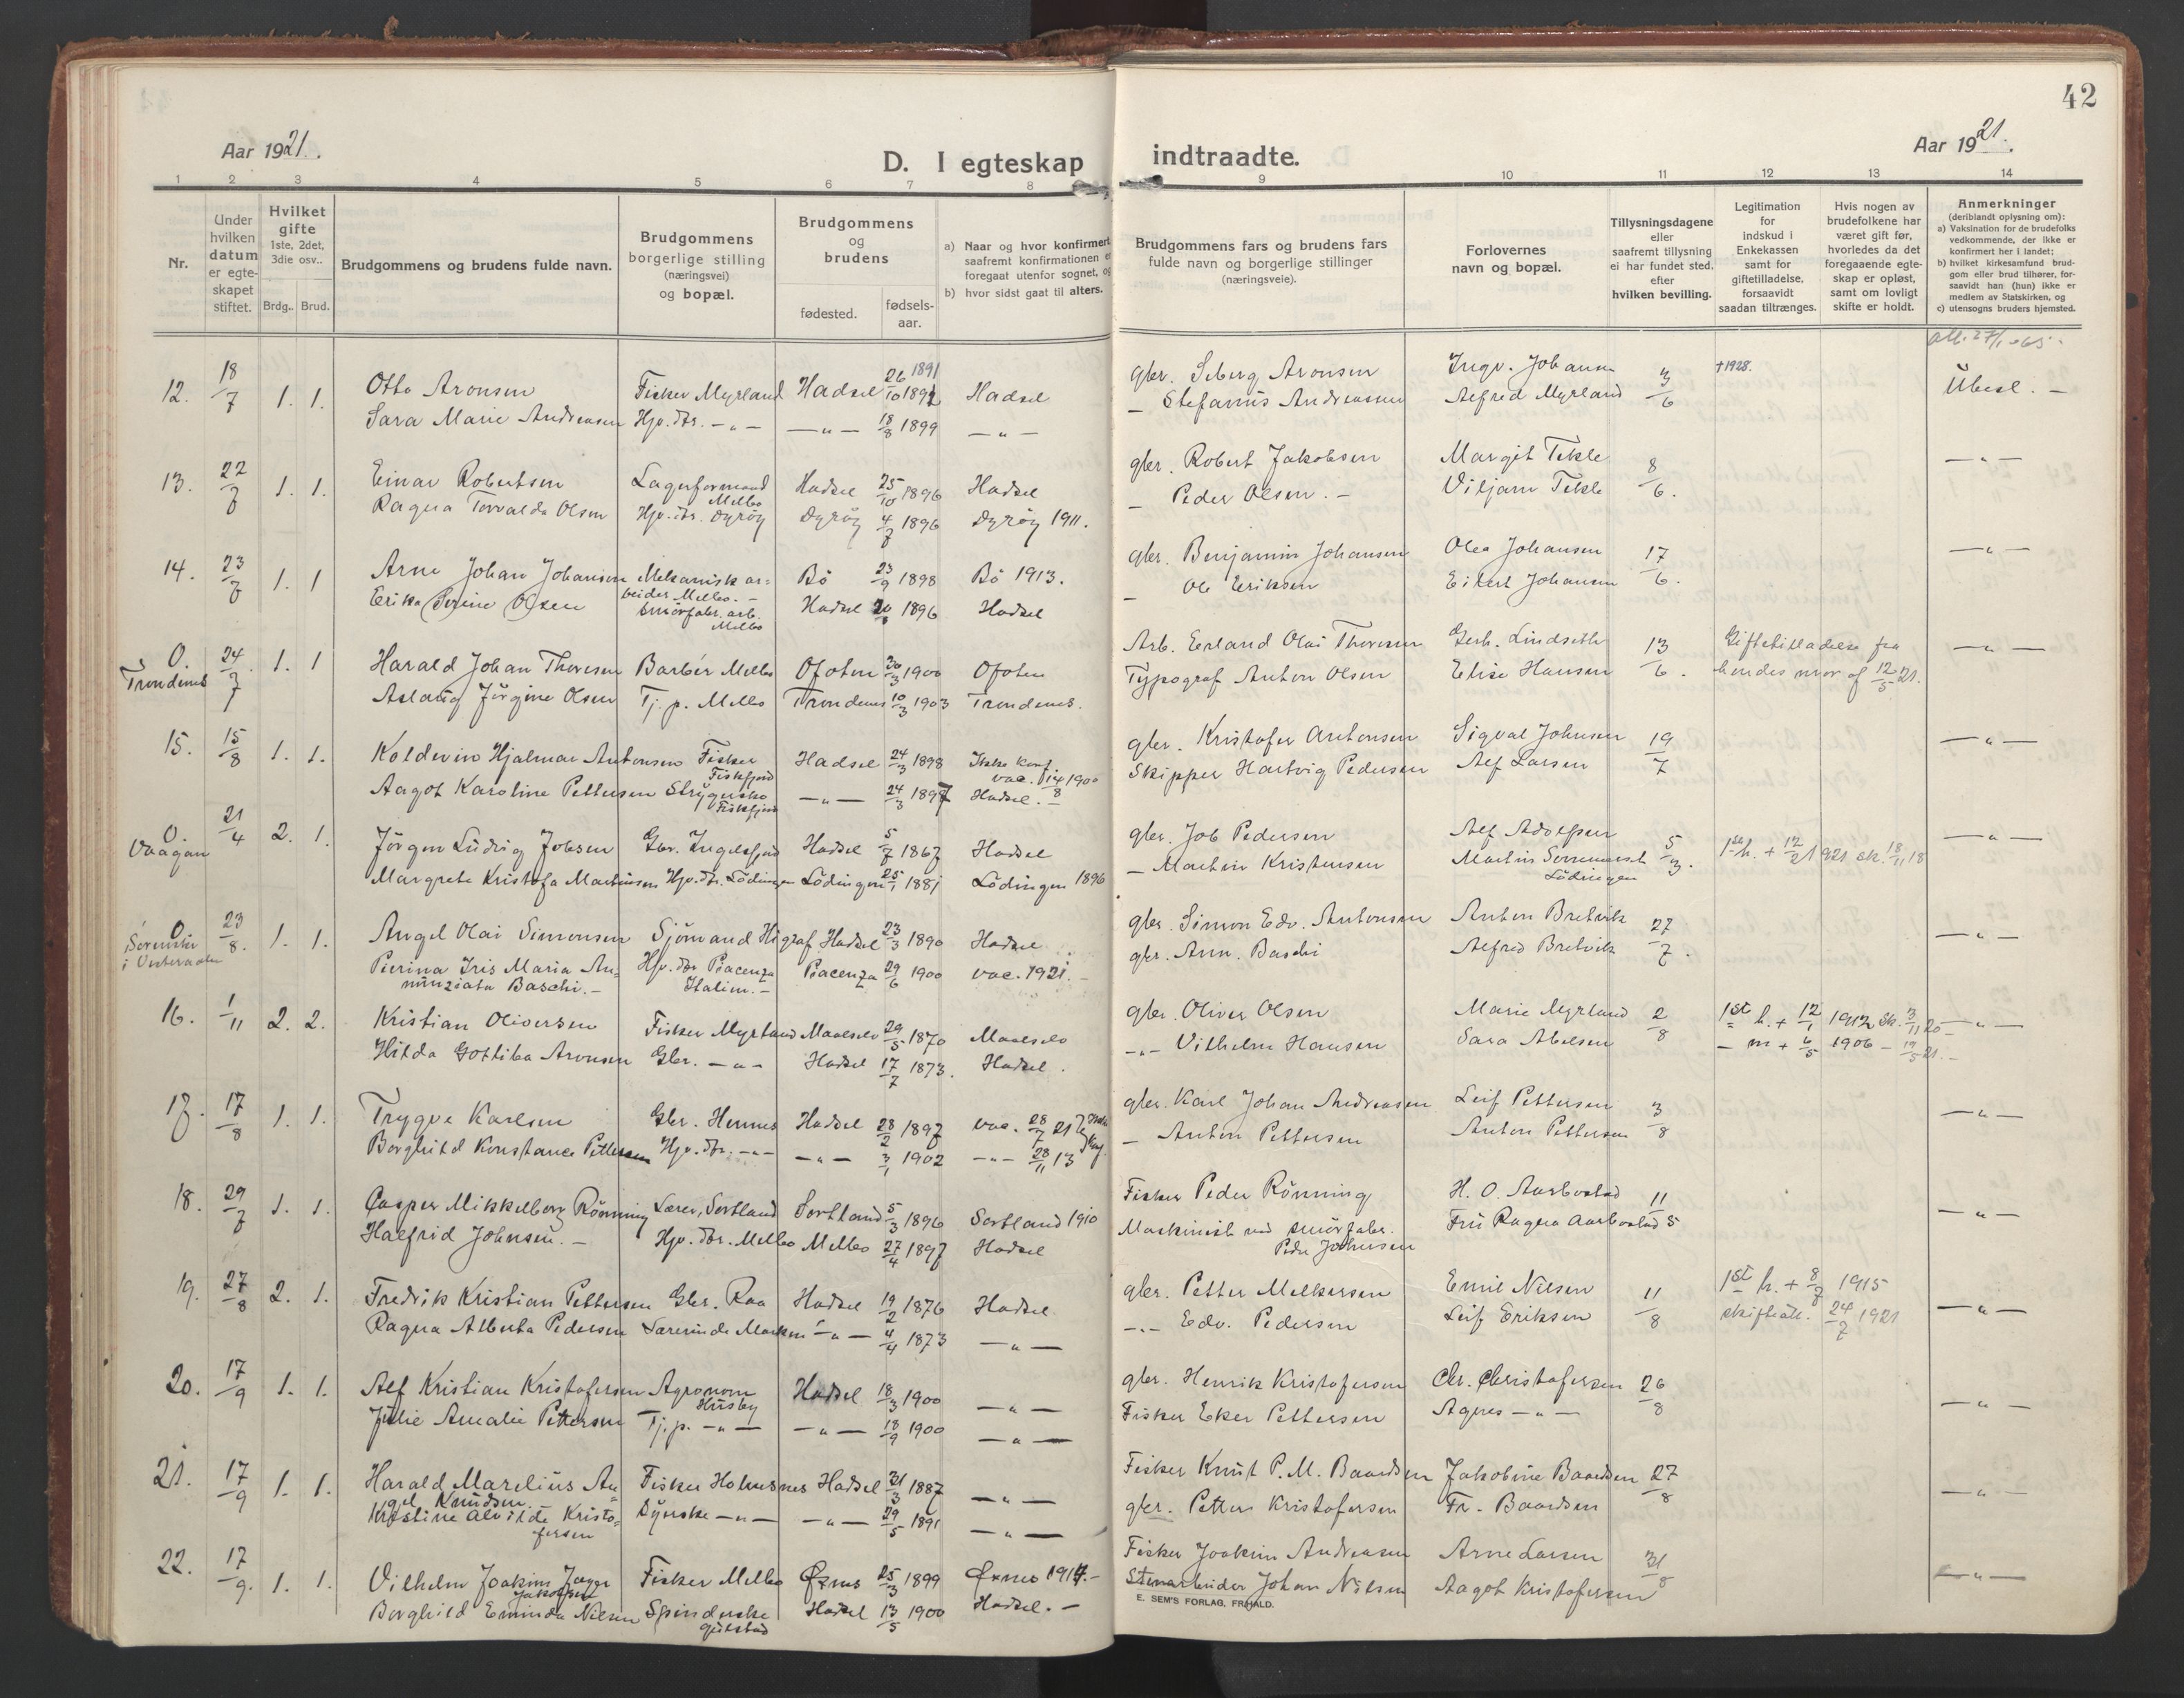 42
Aar 1921.
D. I egteskap indtraadte.
Aar 1921.
1 2 3 4 5 6 7 8 9 10 11 12 13 14
Nr.
Under hvilken datum er egteskapet stiftet.
Hvilket gifte 1ste, 2det, 3die osv..
Brdg.. Brud.
Brudgommens og brudens fulde navn.
Brudgommens borgerlige stilling (næringsvei) og bopæl.
Brudgommens og brudens
fødested. fødsels-aar.
a) Naar og hvor konfirmert saafremt konfirmationen er foregaat utenfor sognet, og
b) hvor sidst gaat til alters.
Brudgommens fars og brudens fars fulde navn og borgerlige stillinger (næringsveie).
Forlovernes navn og bopæl.
Tillysningsdagene eller saafremt tillysning ei har fundet sted, efter hvilken bevilling.
Legitimation for indskud i Enkekassen samt for giftetilladelse, forsaavidt saadan tiltrænges.
Hvis nogen av brudefolkene har været gift før, hvorledes da det foregaaende egteskap er opløst, samt om lovligt skifte er holdt.
Anmerkninger (deriblandt oplysning om):
a) Vaksination for de brudefolks vedkommende, der ikke er konfirmert her i landet;
b) hvilket kirkesamfund brudgom eller brud tilhører, forsaavidt han (hun) ikke er medlem av Statskirken, og
c) utensogns bruders hjemsted.
12. 18/7 1. 1. Otto Aronsen Fisker Myrland Hadsel 26/10 1892 1891 Hadsel gbr. Seberg Aronsen Ingv. Johansen 3/6 +1928. Ubesl. —
Sara Marie Andreasen Hjv. dtr. —„— —„— 18/8 1899 —„— — Stefanus Andreassen Alfred Myrland
13. 22/7 1. 1. Einar Robertsen Lagerformand Melbo Hadsel 25/10 1896 Hadsel gbr. Robert Jakobsen Margit Tekle 8/6. —„—
Ragna Torvalda Olsen Hjv. dtr. Dyröy Dyröy 4/7 1896 Dyröy 1911. — Peder Olsen. — Viljam Tekle
14. 23/7 1. 1 Arne Johan Johansen Mekanisk arbeider Melbo. — Bö 23/9 1898 Bö 1913. gbr. Benjamin Johansen Olea Johansen 17/6. —„—
Erika Perine Olsen Smörfabr. arb. Melbo Hadsel 1896 Hadsel — Ole Eriksen Eilert Johansen
O. Trondenes 24/7 1. 1 Harald Johan Thoresen Barbér Melbo Ofoten 30/3 1900 Ofoten Arb. Erland Olai Thoresen Gerh. Lindseth 13/6. Giftetilladelse fra —„—
Aslaug Jörgine Olsen Tj. p. Melbo Trondenes 10/3 1903 Trondenes. Typograf Anton Olsen Elise Hansen hendes mor af 12/5 21.
15. 15/8 1. 1. Koldevin Hjalmar Antonsen Fisker Fiskfjord Hadsel 24/3 1898 Ikke konf. vac. 14/8 1900 gbr. Kristofer Antonsen Sigval Johnsen 19/7 —„—
Aagot Karoline Pettersen Strygerske Fiskfjord —„— 24/3 1897 Hadsel. — Skipper Hartvig Pedersen Alf Larsen
O. Vaagan 21/4 2. 1. Jörgen Ludvig Jobsen Gbr. Ingelsfjord Hadsel 5/7 1867 Hadsel gbr. Job Pedersen Alf Adolfsen 5/3. 1ste h. + 12/2 1921 sk. 18/11 18 —„—
Margrete Kristofa Martinsen Hjv. dtr. Lödingen Lödingen 25/1 1881 Lödingen 1896 — Martin Kristensen Lödingen
O. i Vesteraalen 23/8. 1. 1. Angel Olai Simonsen Sjömand Hadsel 23/3 1890 Hadsel gbr. Simon Edv. Antonsen Anton Bretvik 27/7. —„—
Pierina Iris Maria Annunziata Baschi. — Hjv. dtr Piacenza Italien. — Piacenza 29/6 1900 vac. 1921. — gbr. Ann. Baschi Alfred Bretvik
16. 1/11 2. 2. Kristian Oliversen Fisker Myrland Maalselv 29/5 1870 Maalselv gbr. Oliver Olsen Marie Myrland 2/8 1st h. + 12/1 1912 sk. 3/11 20 —„—
Hilda Gottiba Aronsen Gbr. —„— Hadsel 17/7 1873. Hadsel. —„— Vilhelm Hansen Sara Abelsen — m + 6/5 1906 — 19/5 21. —
17. 17/8 1. 1. Trygve Karlsen Gbr. Hennes Hadsel 28/2 1897 vac. 28/7 21 Ikke konf. gbr. Karl Johan Andreasen Leif Pettersen 3/8 —„—
Borghild Konstance Pettersen Hjv. dtr. —„— —„— 3/1 1902 —„— 28/11 13 — Anton Pettersen Anton Pettersen
18. 29/7 1. 1. Casper Mikkelborg Rönning Lærer, Sortland Sortland 5/3 1896 Sortland 1910 Fisker Peder Rönning H. O. Aarbostad 11/5 —„—
Halfrid Johnsen. — Hjv. dtr. Melbo Melbo 27/4 1897 Hadsel Maskinist ved smörfabr. Peder Johnsen Fru Ragna Aarbostad
19. 27/8 2. 1. Fredrik Kristian Pettersen Gbr. Raa Hadsel 19/2 1876 Hadsel gbr. Petter Melkersen Emil Nilsen 11/8 1st h. + 8/7 1915 —„—
Ragna Alberta Pedersen Lærerinde —„— 4/4 1873 —„— —„— Edv. Pedersen Leif Eriksen skifteatt. 24/7 1921
20. 17/9 1. 1. Alf Kristian Kristofersen Agronom Husby Hadsel 18/3 1900 —„— gbr. Henrik Kristofersen Chr. Christofersen 26/8 —„—
Julie Amalie Pettersen Tj. p. —„— —„— 18/9 1900 —„— Fisker Eker Pettersen Agnes —„—
21. 17/9 1. 1. Harald Marelius Angel Knudsen Fisker Holmsnes Hadsel 31/3 1887 —„— Fisker Knut P. M. Baardsen Jakobine Baardsen 27/8 —„—
Kristine Alvilde Kristofersen Syerske —„— —„— 29/5 1891 —„— gbr. Petter Kristofersen Fr. Baardsen
22. 17/9. 1. 1. Vilhelm Joakim Jakobsen Fisker Melbo Øxnes 25/3 1899 Øxnes 1914. — Fisker Joakim Andreasen Arne Larsen 31/8 —„—
Borghild Erninda Nilsen Spinderske Gulstad Hadsel 13/5 1900 Hadsel. — Stenarbeider Johan Nilsen Aagot Kristofersen
E. SEM'S FORLAG, FRHALD.